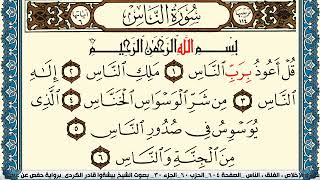 سُورَةُ النَّاسِ
بِسْمِ اللَّهِ الرَّحْمَٰنِ الرَّحِيمِ
قُلْ أَعُوذُ بِرَبِّ النَّاسِ ١ مَلِكِ النَّاسِ ٢ إِلَٰهِ
النَّاسِ ٣ مِن شَرِّ الْوَسْوَاسِ الْخَنَّاسِ ٤ الَّذِي
يُوَسْوِسُ فِي صُدُورِ النَّاسِ ٥
مِنَ الْجِنَّةِ وَالنَّاسِ ٦
الإخلاص ، الفلق ، الناس . الصفحة ٦٠٤ . الحزب ٦٠ . الجزء ٣٠ . بصوت الشيخ بيشةوا قادر الكردي . برواية حفص عن